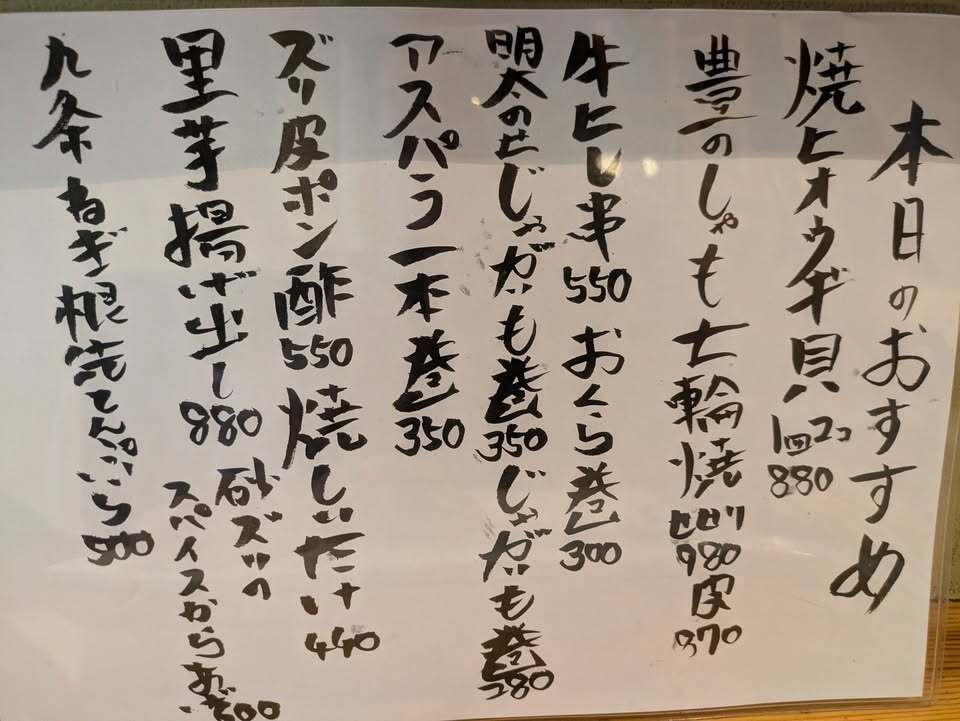 本日のおすすめ
焼ヒオウギ貝 1皿2コ 880
豊のしゃも七輪焼 セセリ 980 皮 870
牛ヒレ串 550 おくら巻 300
明太のせじゃがいも巻 350 じゃがいも巻 280
アスパラ一本巻 350
ズリ皮ポン酢 550 焼しいたけ 440
里芋揚げ出し 880 砂ズリの
スパイスからあげ 500
九条ねぎ根先てんぷら 500